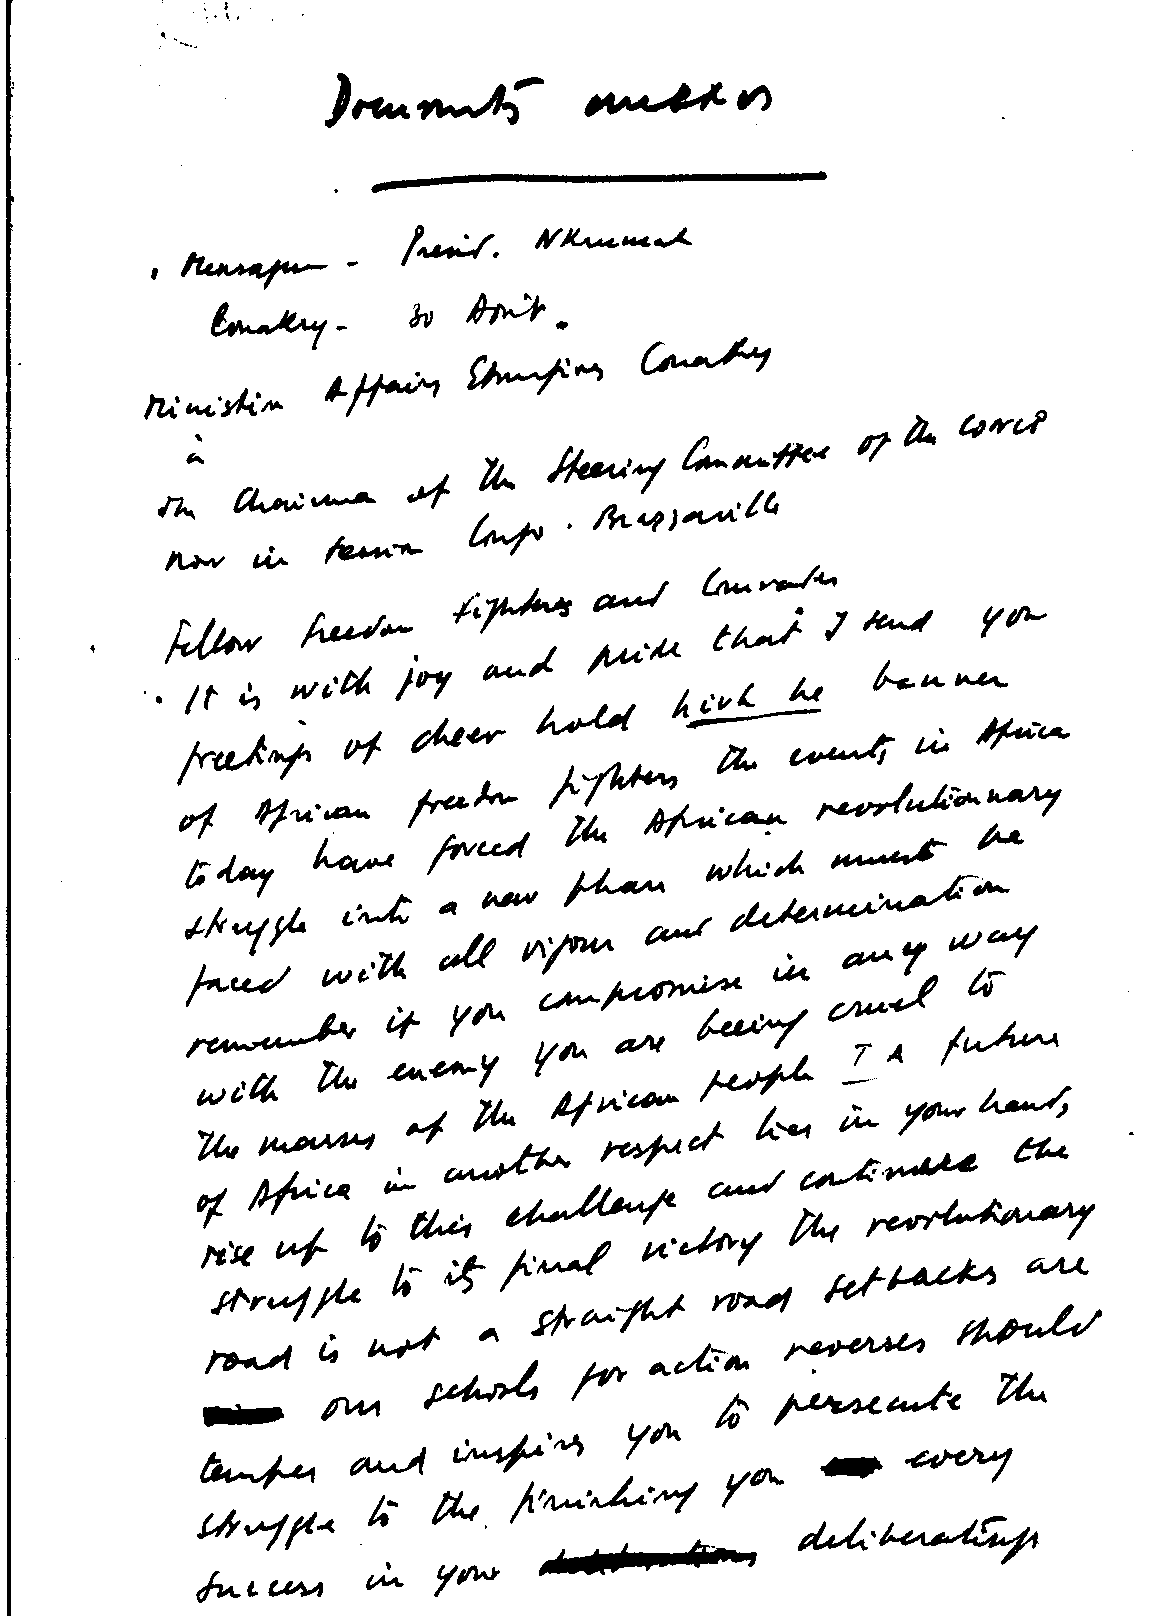 Documents annexes
. Mensagem - Presid. NKrumah
Conakry - 30 Août.
Ministère Affairs Etrangères Conakry
à
the Chairman of the Steering Committee of the CONCP
now in session Congo. Brazzaville
Fellow freedom fighters and Comrades
. It is with joy and pride that I send you
greetings of cheer hold high he banner
of African freedom fighters the events in Africa
today have forced the African revolutionary
struggle into a new phase which must be
faced with all vigour and determination
remember if you compromise in any way
with the enemy you are beeing cruel to
the masses of the African people T A future
of Africa in another respect lies in your hands
rise up to this challenge and continue the
struggle to its final victory the revolutionary
road is not a straight road setbacks are
our schools for action reverses should
temper and inspires you to persecute the
struggle to the finishing you every
success in your deliberatings